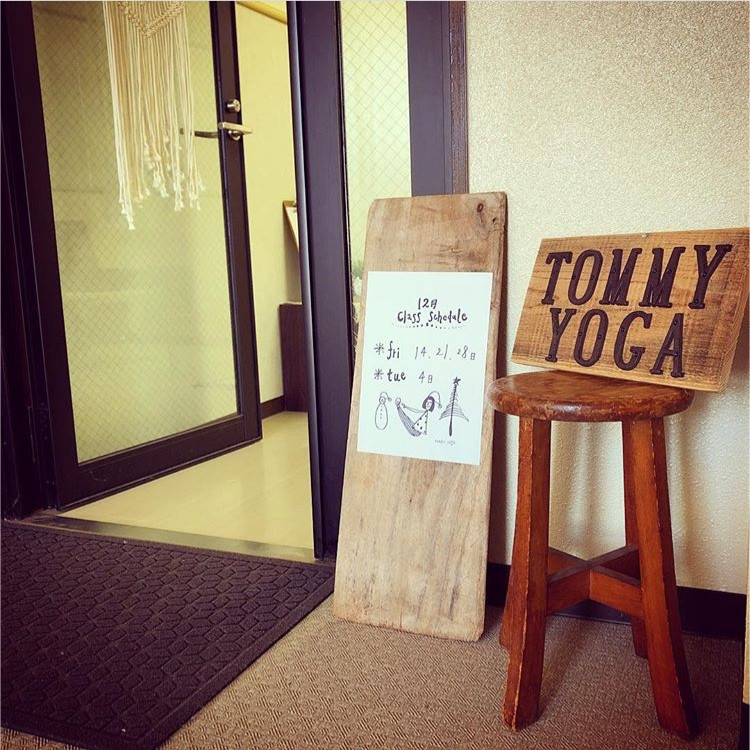 12月
Class Schedule
※fri 14. 21. 28日
※tue 4日
TOMMY
YOGA